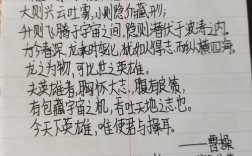 大则兴云吐雾，小则隐介藏形；
升则飞腾于宇宙之间，隐则潜伏于波涛之内。
方今春深，龙乘时变化，犹如人得志而纵横四海。
龙之为物，可比世之英雄。
夫英雄者，胸怀大志，腹有良策，
有包藏宇宙之机，吞吐天地之志也。
今天下英雄，唯使君与操耳。
——曹操